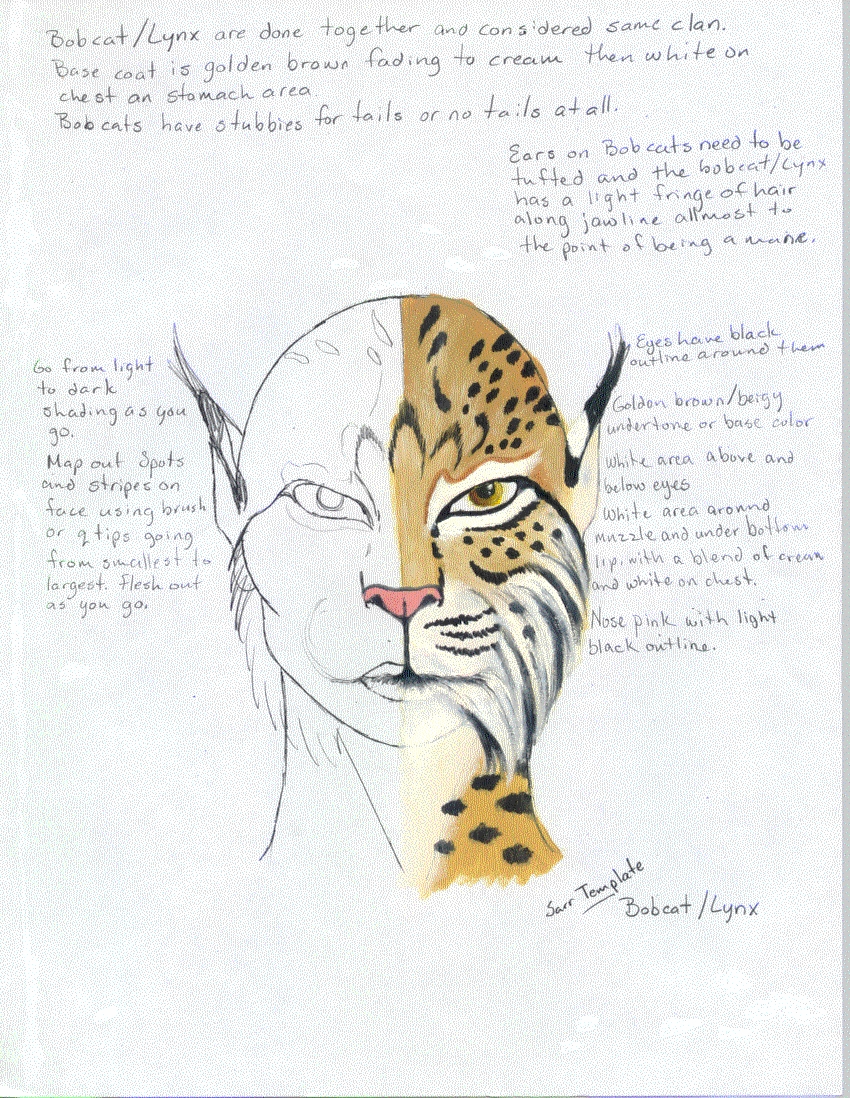 Bobcat/Lynx are done together and considered same clan.
Base coat is golden brown fading to cream then white on
chest an stomach area.
Bobcats have stubbies for tails or no tails at all.
Ears on Bobcats need to be
tufted and the bobcat/Lynx
has a light fringe of hair
along jawline allmost to
the point of being a mane.
Go from light
to dark
shading as you
go.
Map out Spots
and stripes on
face using brush
or q tips going
from smallest to
largest. Flesh out
as you go.
Eyes have black
outline around them
Golden brown/beigy
undertone or base color
White area above and
below eyes
White area around
muzzle and under bottom
lip, with a blend of cream
and white on chest.
Nose pink with light
black outline.
Sarr Template
Bobcat/Lynx